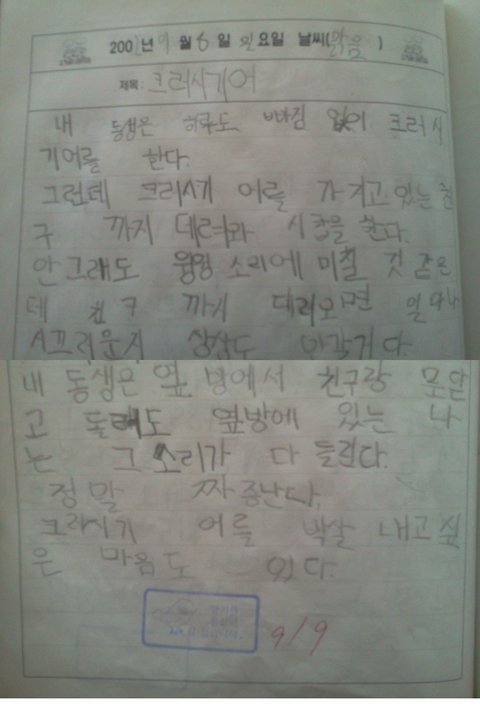 200 년 9 월 6 일 요요일 날씨(맑음)
제목: 크러시기어
내 동생은 하루도 빠짐 없이 크러시
기어를 한다.
그런데 크러시기 어를 가지고 있는 친
구 까지 데려와 시합을 한다.
안 그래도 윙윙 소리에 미칠 것 같은
데 친구 까지 대리오면 얼마나
시끄러운지
내 동생은 옆 방에서 친구랑
고 돌래도 옆방에 있는 나
는 그 소리가 다 들린다.
정말 짜증난다.
크러시기 어를 박살 내고 싶
은 마음도 있다.
9/9